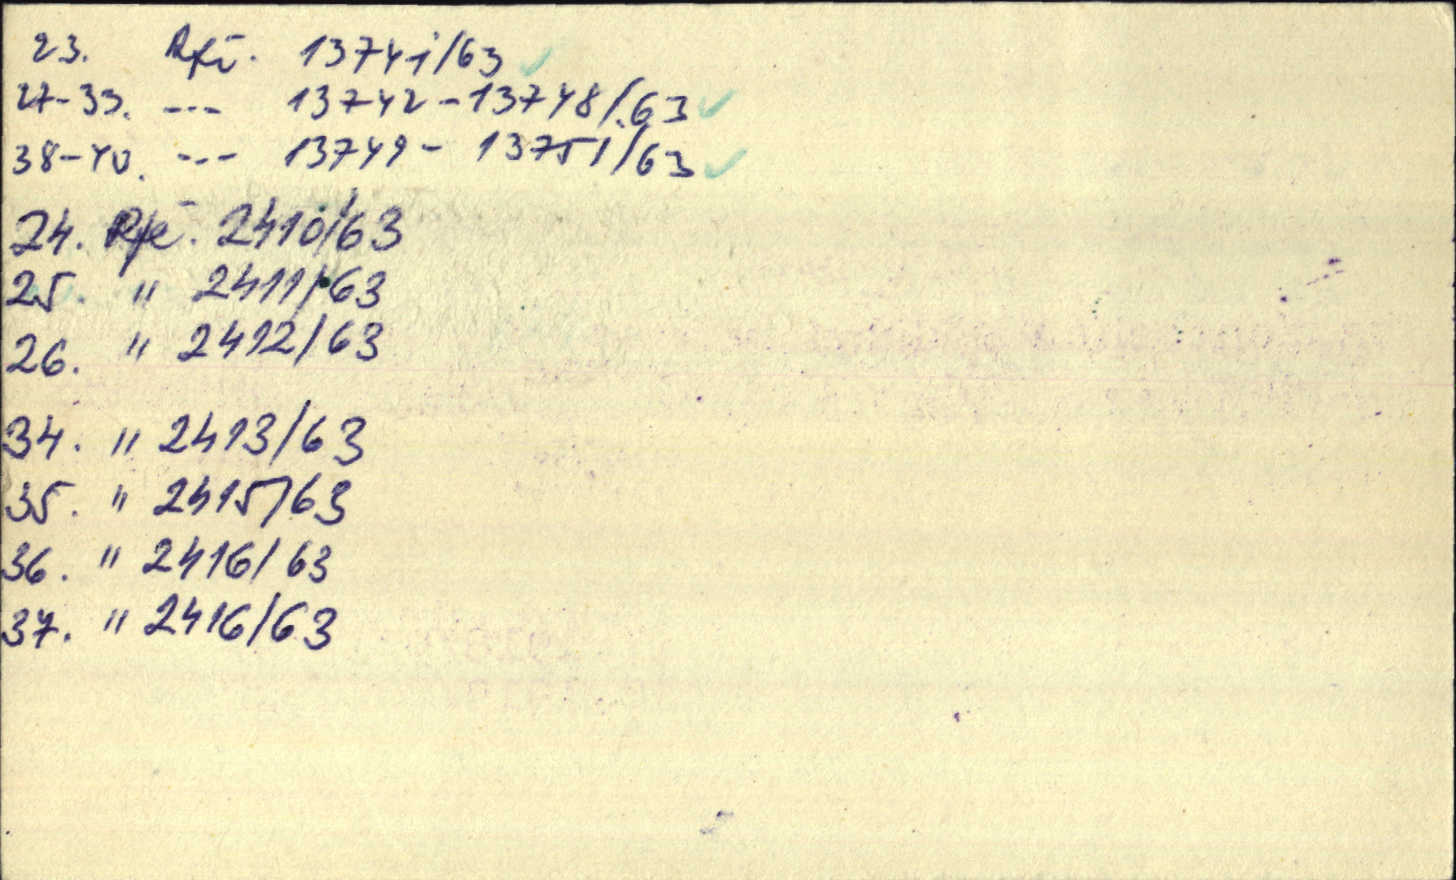 23. Rpč. 13741/63 ✓
27-33. --- 13742-13748/63 ✓
38-40. --- 13749- 13751/63 ✓
24. Rpč. 2410/63
25. " 2411/63
26. " 2412/63
34. " 2413/63
35. " 2415/63
36. " 2416/63
37. " 2416/63